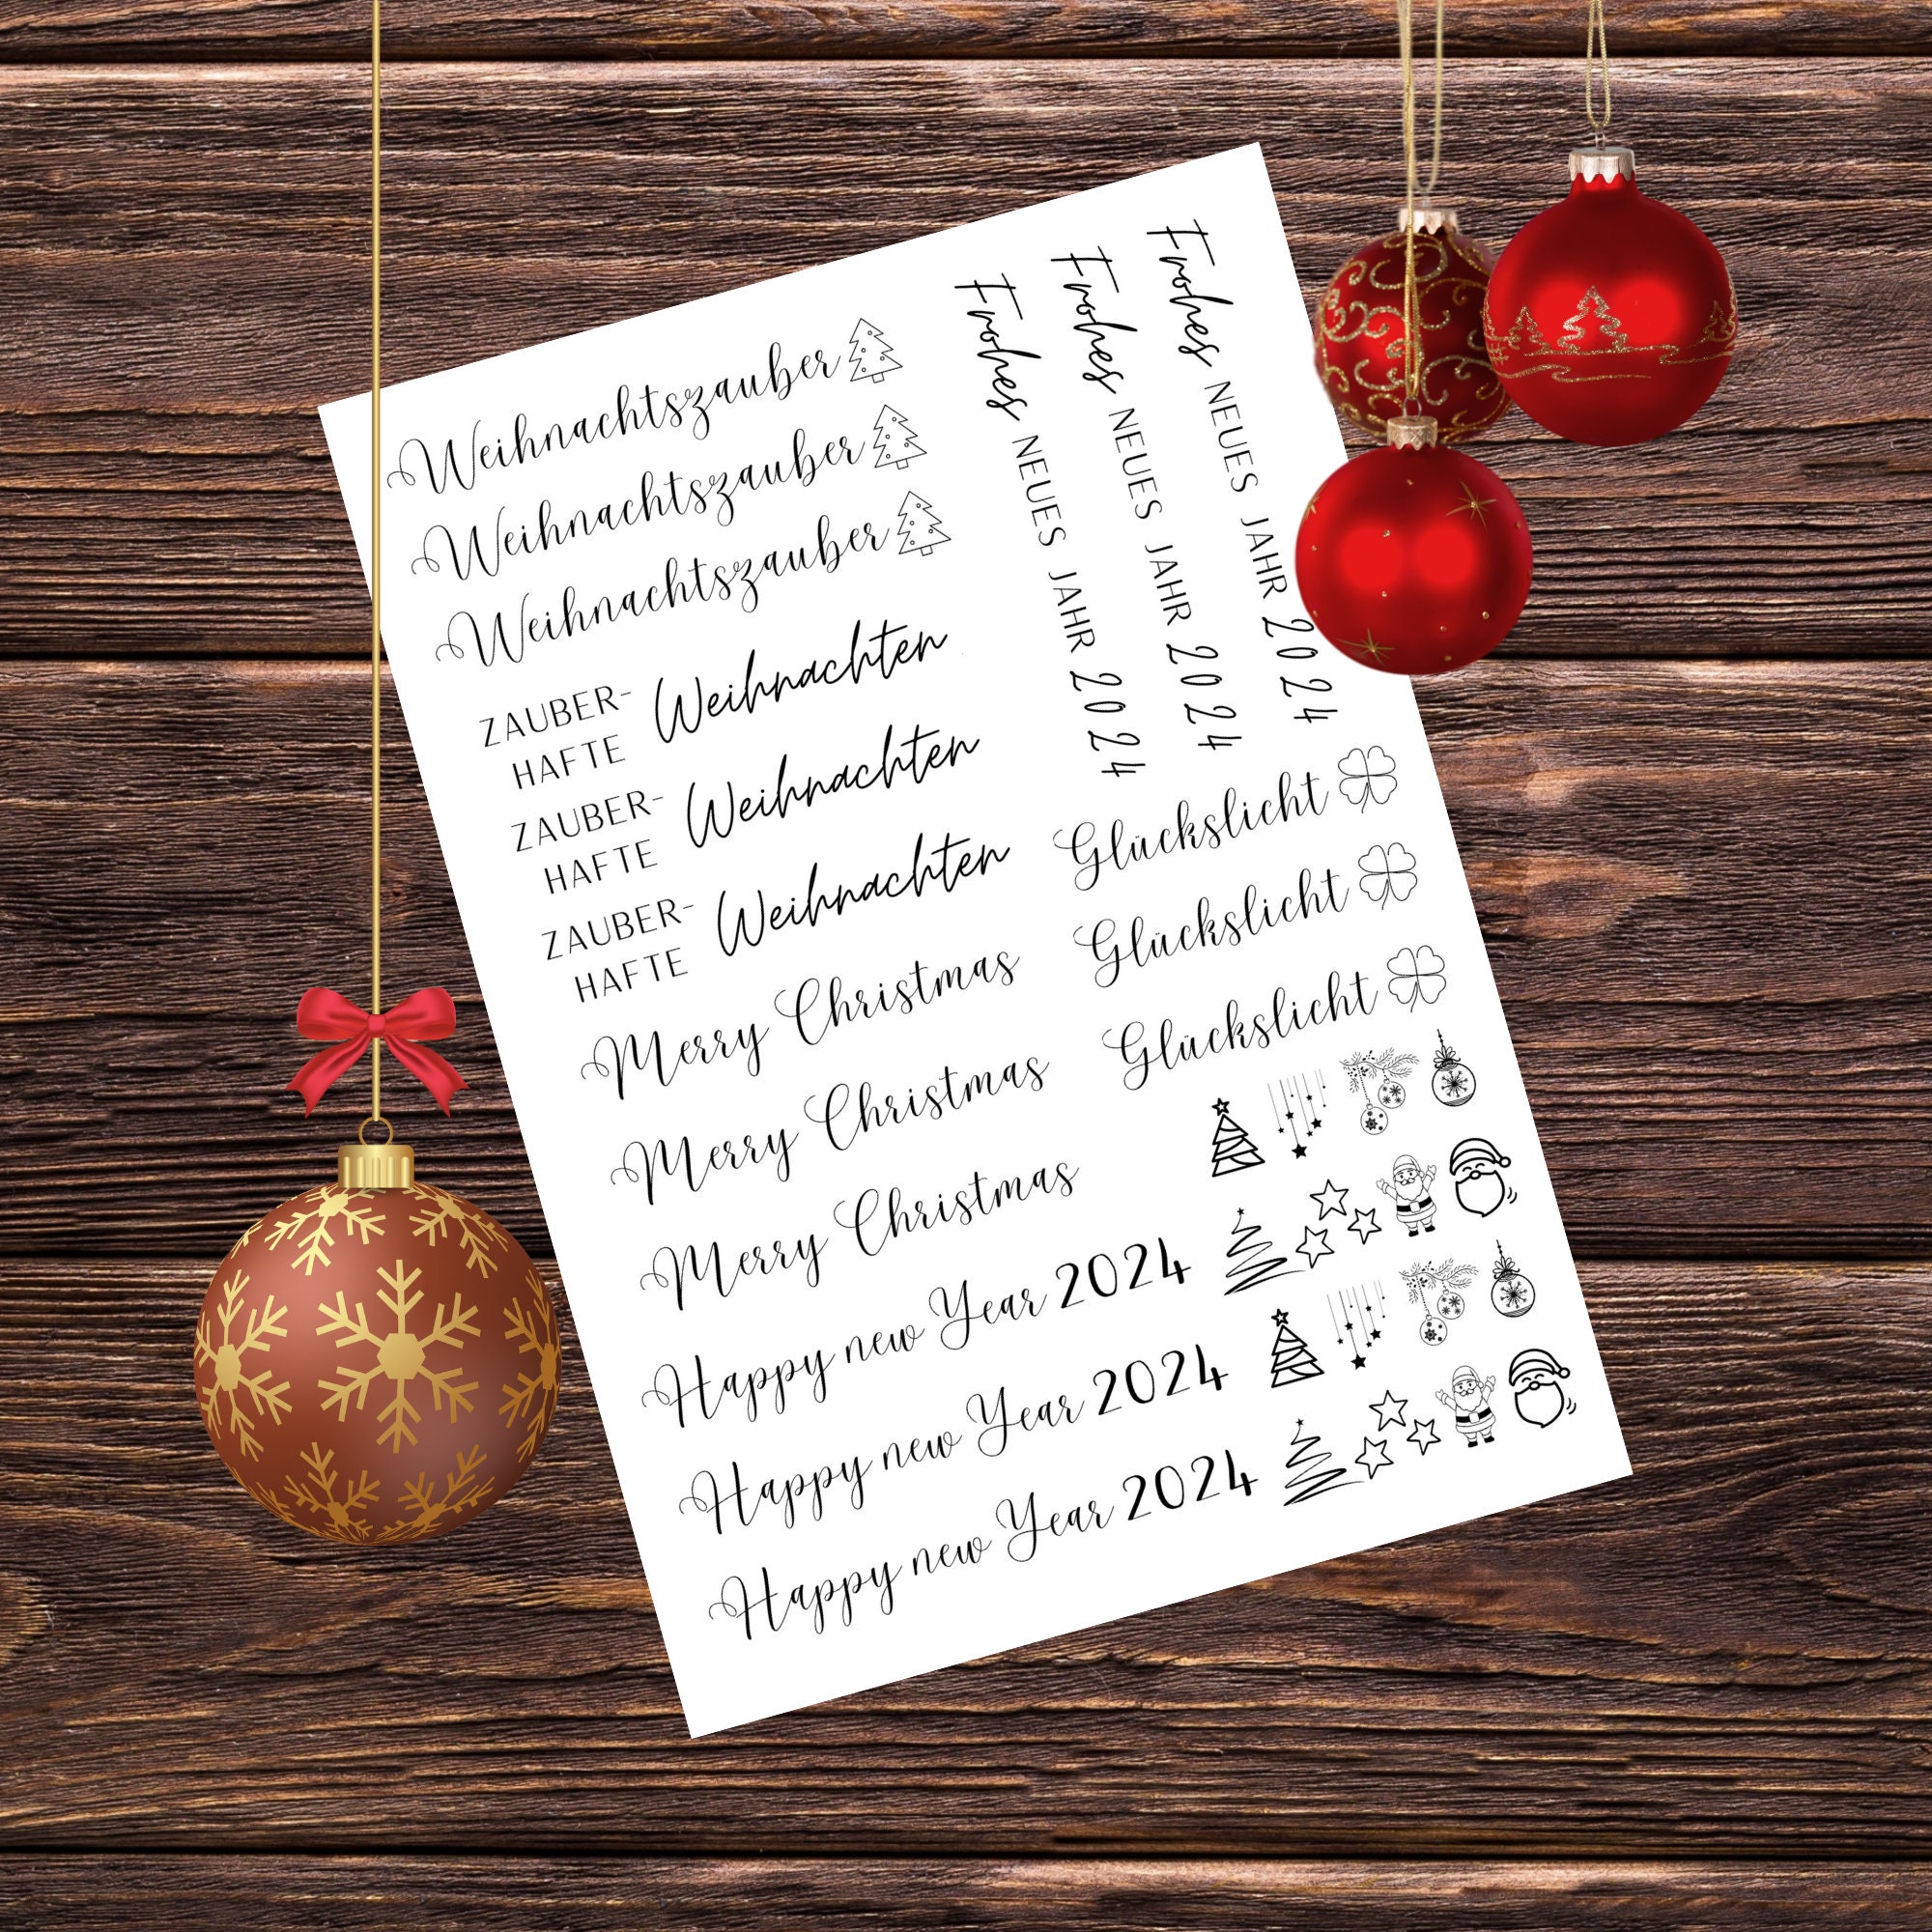 Weihnachtszauber
Weihnachtszauber
Weihnachtszauber
ZAUBER-
HAFTE
Weihnachten
ZAUBER-
HAFTE
Weihnachten
ZAUBER-
HAFTE
Weihnachten
Merry Christmas
Merry Christmas
Merry Christmas
Happy new Year 2024
Happy new Year 2024
Happy new Year 2024
Frohes NEUES JAHR 2024
Frohes NEUES JAHR 2024
Frohes NEUES JAHR 2024
Glückslicht
Glückslicht
Glückslicht